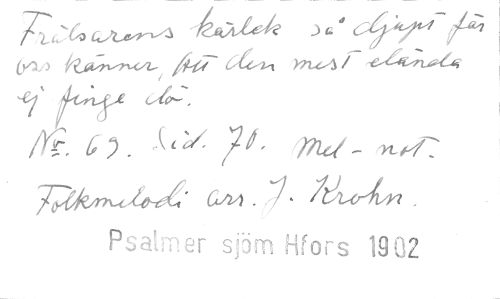 Frälsarens kärlek så djupt för
oss känner, Att den mest elända
ej finge dö.
No. 69. Sid. 70. Mel-not.
Folkmelodi arr. J. Krohn.
Psalmer sjöm Hfors 1902